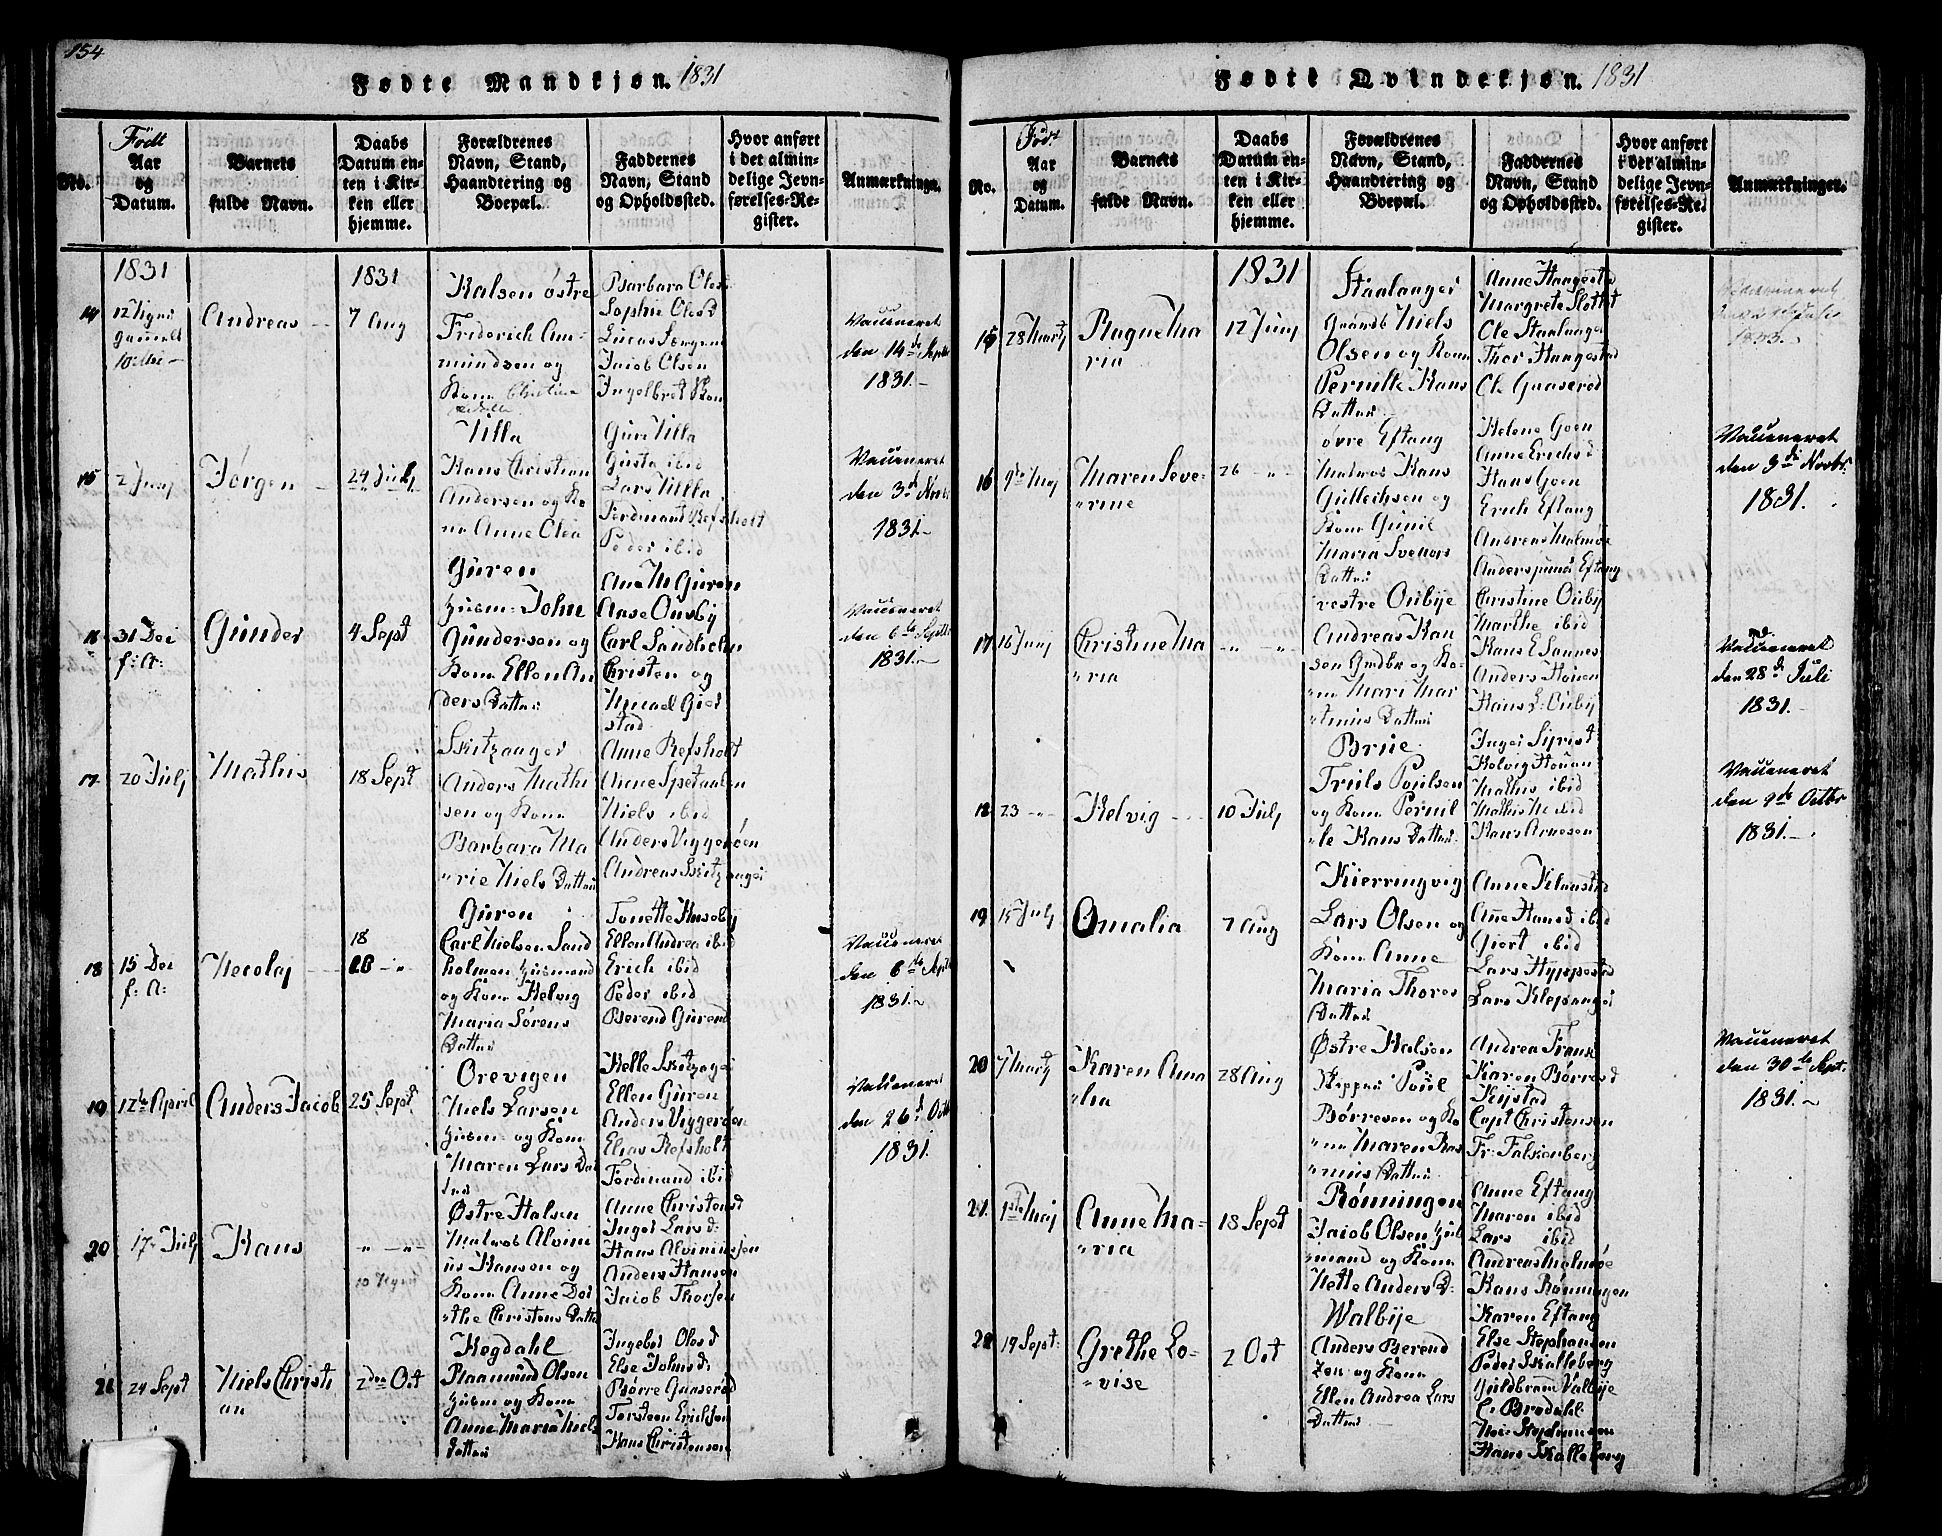 154
Fødte Mandkjøn. 1831
No.
Født
Aar
og
Datum.
Barnets
fulde Navn.
Daabs
Datum en-
ten i Kir-
ken eller
hjemme.
Forældrenes
Navn, Stand,
Haandtering og
Boepæl.
Faddernes
Navn, Stand
og Opholdssted.
Hvor anført
i det almin-
delige Jevn-
førelses-Re-
gister.
Anmærkninger.
1831
14
Andreas
1831
7 Aug
Kalsen østre
Friderich Am-
mundsen og
Kone Christina
Barbara Oles
Sophie Olesd
Lucas Jørgen
Jacob Olsen
Ingelbret
Vaccineret
den 14de Septb
1831.
15
2 Junj
Jørgen
24 Julj
Villa
Hans Christian
Andersen og Ko
ne Anne Olea
Guri Villa
Gusta ibid
Lars Villa
Ferdinand Refsholt
Peder ibid
Vaccineret
den 3de Novbr
1831.
16
31 Dec
f: A:
Gunder
4 Sept
Guren
Husm: John
Gundersen og
Kone Ellen An
ders Datter
Ane M Guren
Anse Ousby
Carl Sandholm
Christen og
Michael Gied
stad
Vaccineret
den 6te Septb
1831.
17
20 Julj
Mathis
18 Sept
Skitzanger
Anders Mathi
sen og Kone
Barbara Ma
rie Niels Datter
Anne Refsholt
Anne Spetaalen
Niels ibid
Anders Viggersøen
Andreas Skitzanger
18
15 Dec
f: A:
Necolaj
18
Guren
Carl Nielsen Sand
holmen Husmand
og Kone Helvig
Maria Sørens
Datter
Tonette Huseby
Ellen Andrea ibid
Erich ibid
Peder ibid
Berend Gurend
Vaccineret
den 6te Septb
1831.
19
12te April
Anders Jacob
25 Sept
Orevigen
Niels Larsen
Husm: og Kone
Maren Lars Dat
ter
Helle Skitzager
Ellen Guren
Anders Viggersøen
Elias Refsholt
Ferdinand ibid
Vaccineret
den 26de Octb
1831.
20
17 Julj
Hans
Østre Halsen
Matros Alvini
us Hansen og
Kone Anne Dor
the Christens Datter
Anne Christensd
Inger Larsd:
Hans Alviniussen
Anders Hansen
Jacob Thorsen
21
24 Sept
Niels Christi
an
2den Oct
Hegdahl
Raamund Olsen
Husm og Kone
Anne Maria Niels
Datter
Ingebor Olesd
Else Johnsd:
Børre Gaaserød
Torsteen Erichsen
Hans Christensen
Fødte Qvindekjøn. 1831
No.
Født
Aar
og
Datum.
Barnets
fulde Navn.
Daabs
Datum en-
ten i Kir-
ken eller
hjemme.
Forældrenes
Navn, Stand,
Haandtering og
Boepæl.
Faddernes
Navn, Stand
og Opholdssted.
Hvor anført
i det almin-
delige Jevn-
førelses-Re-
gister.
Anmærkninger.
1831
15
28 Martj
Ragne Ma
ria
12 Junj
Staalanger
Grandb Niels
Olsen og Kone
Pernille Hans
Datter
Anne Haugestad
Margrete Slottet
Ole Staalanger
Thor Haugestad
Ole Gaaserød
1833
16
9de Maj
Maren Seve-
rine
26
øvre Eftang
Matros Hans
Gullichsen og
Kone Gunil
Maria Svenors
Datter
Helene Goen
Anne Erichsd
Hans Goen
Erich Eftang
Andreas Malmøe
Anders Eftang
Vaccineret
den 3de Novbr.
1831.
17
16 Junj
Christine Ma
ria
vestre Oubye
Andreas Han
sen Gmdbr og Ko-
ne Mari Mar
tinus Datter
Christine Ouby
Marthe ibid
Hans E Sannes
Anders Houen
Hans L: Ouby
Vaccineret
den 28de Juli
1831.
18
23
Helvig
10 Julj
Brue
Truls Poulsen
og Kone Pernil
le Hans Datter
Inger Syrist
Helvig Houen
Mathis ibid
Mathis N ibid
Hans Arnesen
Vaccineret
den 9de Octbr
1831.
19
15 Julj
Omalia
7 Aug
Kierringvig
Lars Olsen og
Kone Anne
Maria Thores
Datter
Anne Klaastad
Anne Hansd ibid
Giert ibid
Lars Hyppestad
Lars Klepanger
20
7 Martj
Karen Ama
lia
28 Aug
Østre Halsen
Skipper Poul
Børresen og Ko
ne Maren Ras
mus Datter
Andrea Frank
Karen Børresd
Kejstad
Capt Christensen
Fr: Falkenberg
Vaccineret
den 30te Sept.
1831.
21.
1ste Maj
Anne Ma-
ria
18 Sept
Rønningen
Jacob Olsen Hus
mand og Kone
Nette Anders D:
Anne Eftang
Maren ibid
Lars ibid
Andreas Malmøe
Hans Rønningen
22
19 Sept:
Grethe Lo-
vise
2 Oct
Walbye
Anders Berend
zen og Kone
Ellen Andrea Lars
Datter
Karen Eftang
Else Stephansen
Peder Skalleberg
Guldbrand Valbye
C: Brødahl
Hans Skalleberg